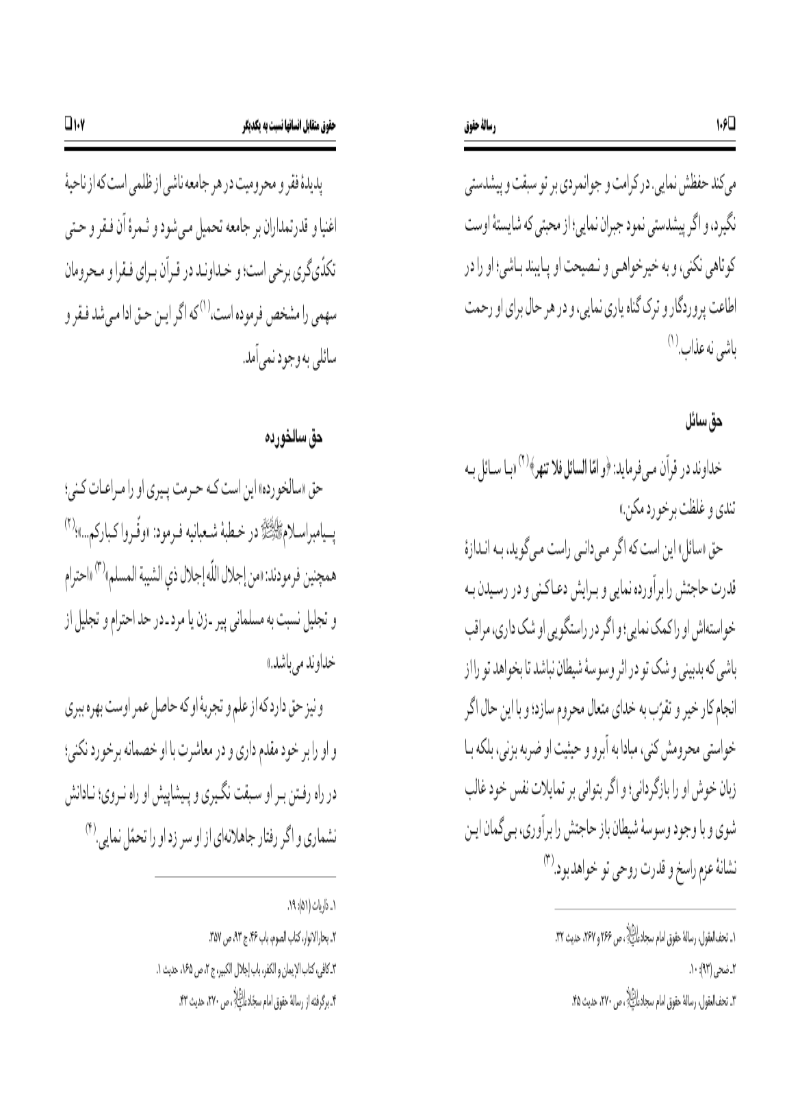 ❏۱۰۶ رسالهٔ حقوق
می‌کند حفظش نمایی. در کرامت و جوانمردی بر تو سبقت و پیشدستی
نگیرد، و اگر پیشدستی نمود جبران نمایی؛ از محبتی که شایستهٔ اوست
کوتاهی نکنی، و به خیرخواهی و نصیحت او پایبند باشی؛ او را در
اطاعت پروردگار و ترک گناه یاری نمایی، و در هر حال برای او رحمت
باشی نه عذاب.(۱)
حق سائل
خداوند در قرآن می‌فرماید: ﴿و امّا السائل فلا تنهر﴾(۲) «با سائل به
تندی و غلظت برخورد مکن.»
حق «سائل» این است که اگر می‌دانی راست می‌گوید، به اندازهٔ
قدرت حاجتش را برآورده نمایی و برایش دعا کنی و در رسیدن به
خواسته‌اش او را کمک نمایی؛ و اگر در راستگویی او شک داری، مراقب
باشی که بدبینی و شک تو در اثر وسوسهٔ شیطان نباشد تا بخواهد تو را از
انجام کار خیر و تقرّب به خدای متعال محروم سازد؛ و با این حال اگر
خواستی محرومش کنی، مبادا به آبرو و حیثیت او ضربه بزنی، بلکه با
زبان خوش او را بازگردانی؛ و اگر بتوانی بر تمایلات نفس خود غالب
شوی و با وجود وسوسهٔ شیطان باز حاجتش را برآوری، بی‌گمان این
نشانهٔ عزم راسخ و قدرت روحی تو خواهد بود.(۳)
۱ـ تحف‌العقول، رسالهٔ حقوق امام سجاد علیه‌السلام، ص ۲۶۶ و ۲۶۷، حدیث ۳۲.
۲ـ ضحی (۹۳): ۱۰.
۳ـ تحف‌العقول، رسالهٔ حقوق امام سجاد علیه‌السلام، ص ۲۷۰، حدیث ۴۵.
حقوق متقابل انسانها نسبت به یکدیگر ۱۰۷❏
پدیدهٔ فقر و محرومیت در هر جامعه ناشی از ظلمی است که از ناحیهٔ
اغنیا و قدرتمداران بر جامعه تحمیل می‌شود و ثمرهٔ آن فقر و حتی
تکدّی‌گری برخی است؛ و خداوند در قرآن برای فقرا و محرومان
سهمی را مشخص فرموده است،(۱) که اگر این حق ادا می‌شد فقر و
سائلی به وجود نمی‌آمد.
حق سالخورده
حق «سالخورده» این است که حرمت پیری او را مراعات کنی؛
پیامبراسلام ﷺ در خطبهٔ شعبانیه فرمود: «وقّروا کبارکم...»؛(۲)
همچنین فرمودند: «من إجلال اللّه إجلال ذي الشیبة المسلم»(۳) «احترام
و تجلیل نسبت به مسلمانی پیر ـ زن یا مرد ـ در حد احترام و تجلیل از
خداوند می‌باشد.»
و نیز حق دارد که از علم و تجربهٔ او که حاصل عمر اوست بهره ببری
و او را بر خود مقدم داری و در معاشرت با او خصمانه برخورد نکنی؛
در راه رفتن بر او سبقت نگیری و پیشاپیش او راه نروی؛ نادانش
نشماری و اگر رفتار جاهلانه‌ای از او سر زد او را تحمّل نمایی.(۴)
۱ـ ذاریات (۵۱): ۱۹.
۲ـ بحارالانوار، کتاب الصوم، باب ۴۶، ج ۹۳، ص ۳۵۷.
۳ـ کافی، کتاب الإیمان و الکفر، باب إجلال الکبیر، ج ۲، ص ۱۶۵، حدیث ۱.
۴ـ برگرفته از رسالهٔ حقوق امام سجّاد علیه‌السلام، ص ۲۷۰، حدیث ۴۳.